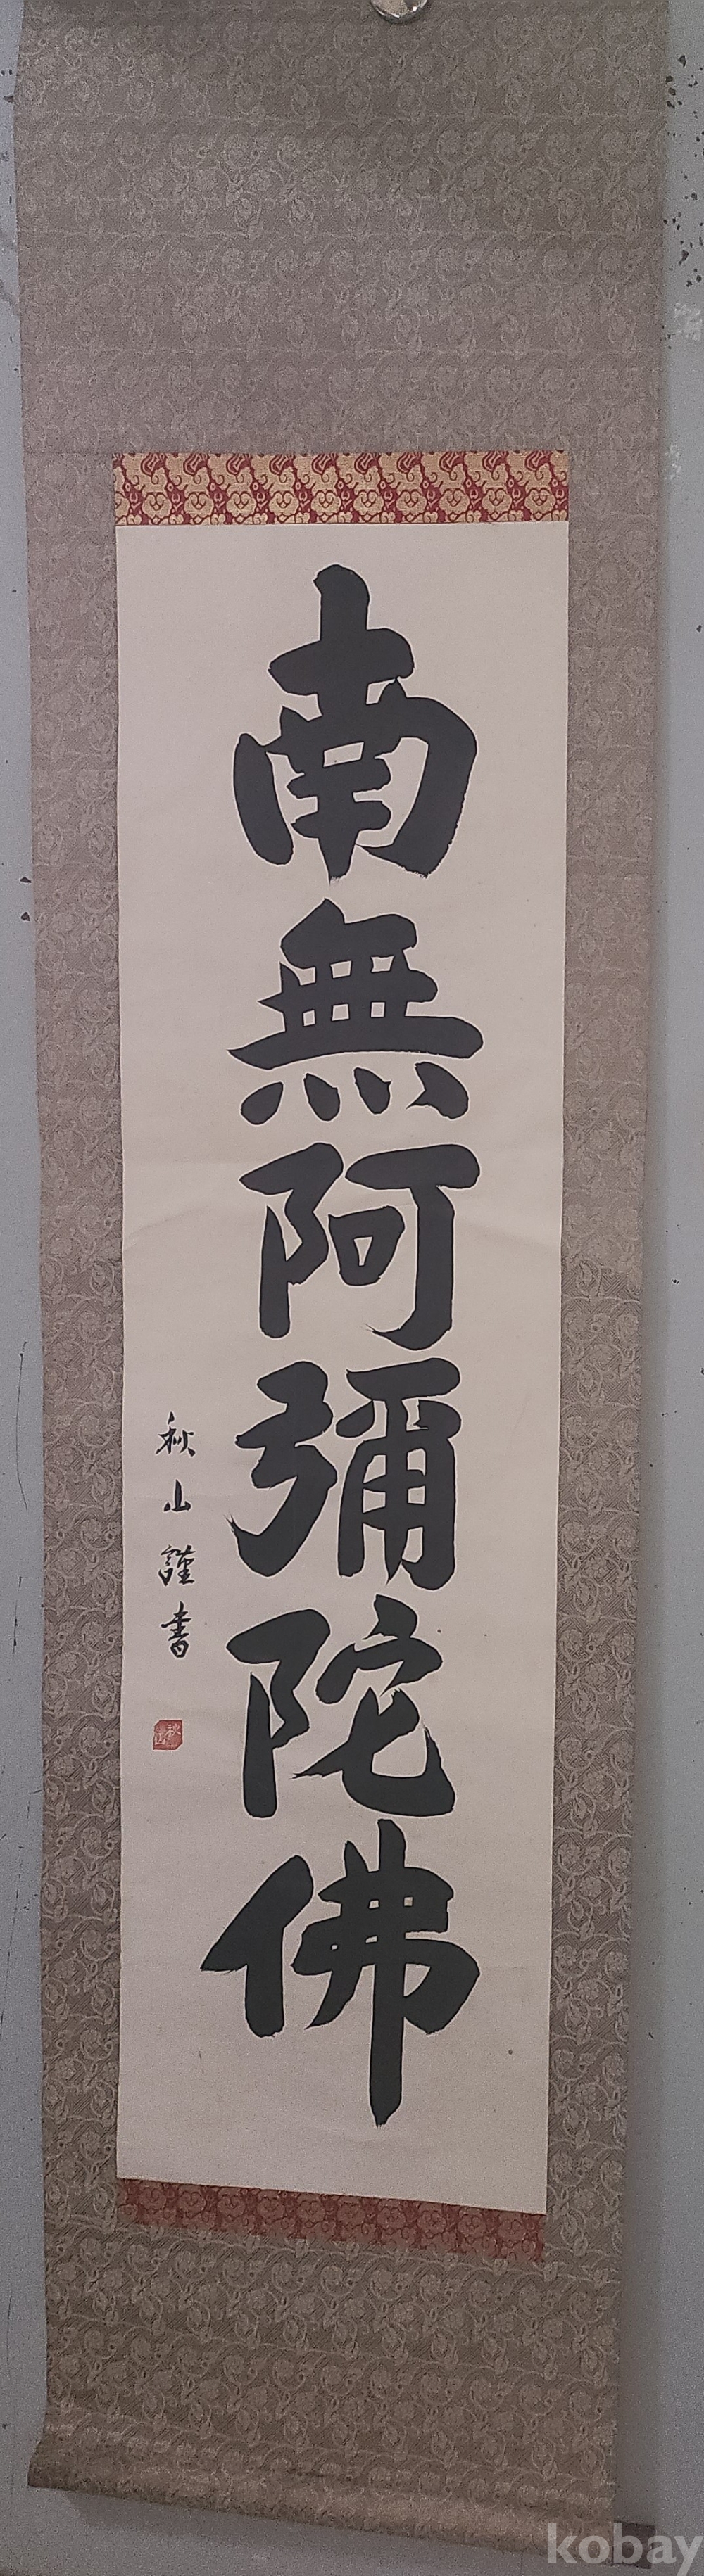 南無阿彌陀佛
秋山謹書
kobay